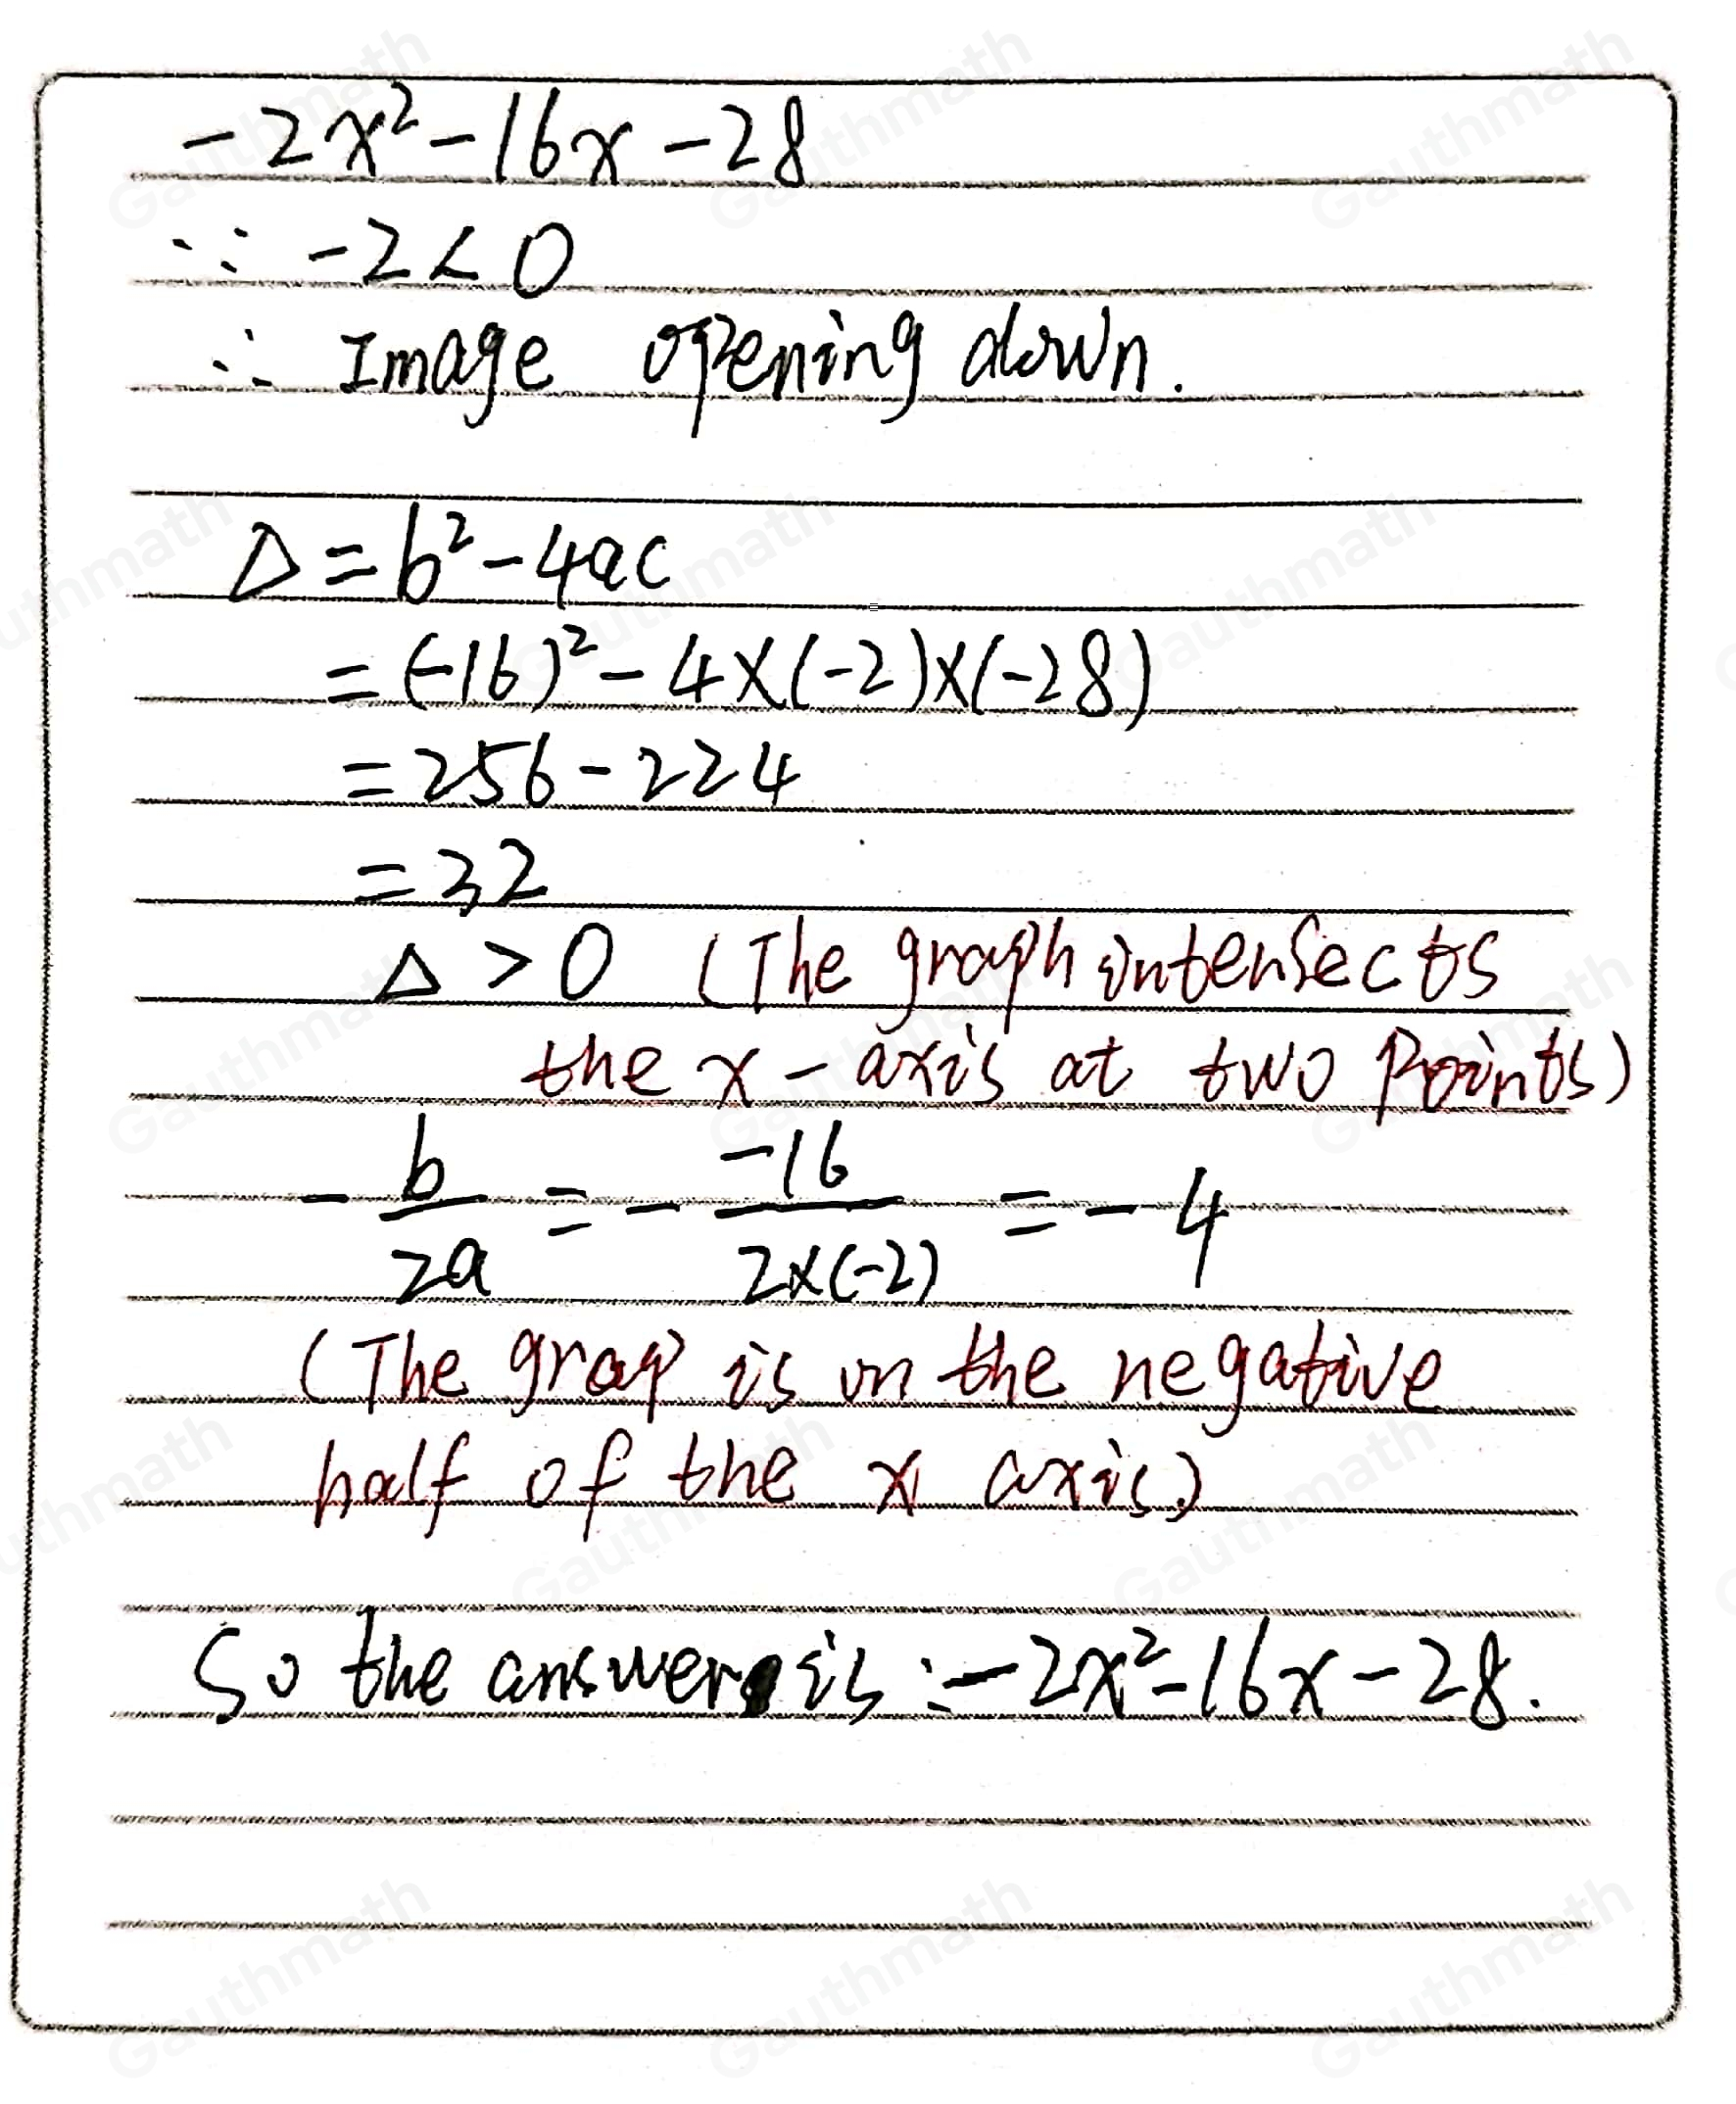 -2x²-16x-28
∵ -2<0
∴ Image opening down.
Δ=b²-4ac
=(-16)²-4×(-2)×(-28)
=256-224
=32
Δ>0 (The graph intersects
the x-axis at two points)
-b/2a=--16/2×(-2)=-4
(The grap is on the negative
half of the x axis)
So the answer is:-2x²-16x-28.
Gauthmath